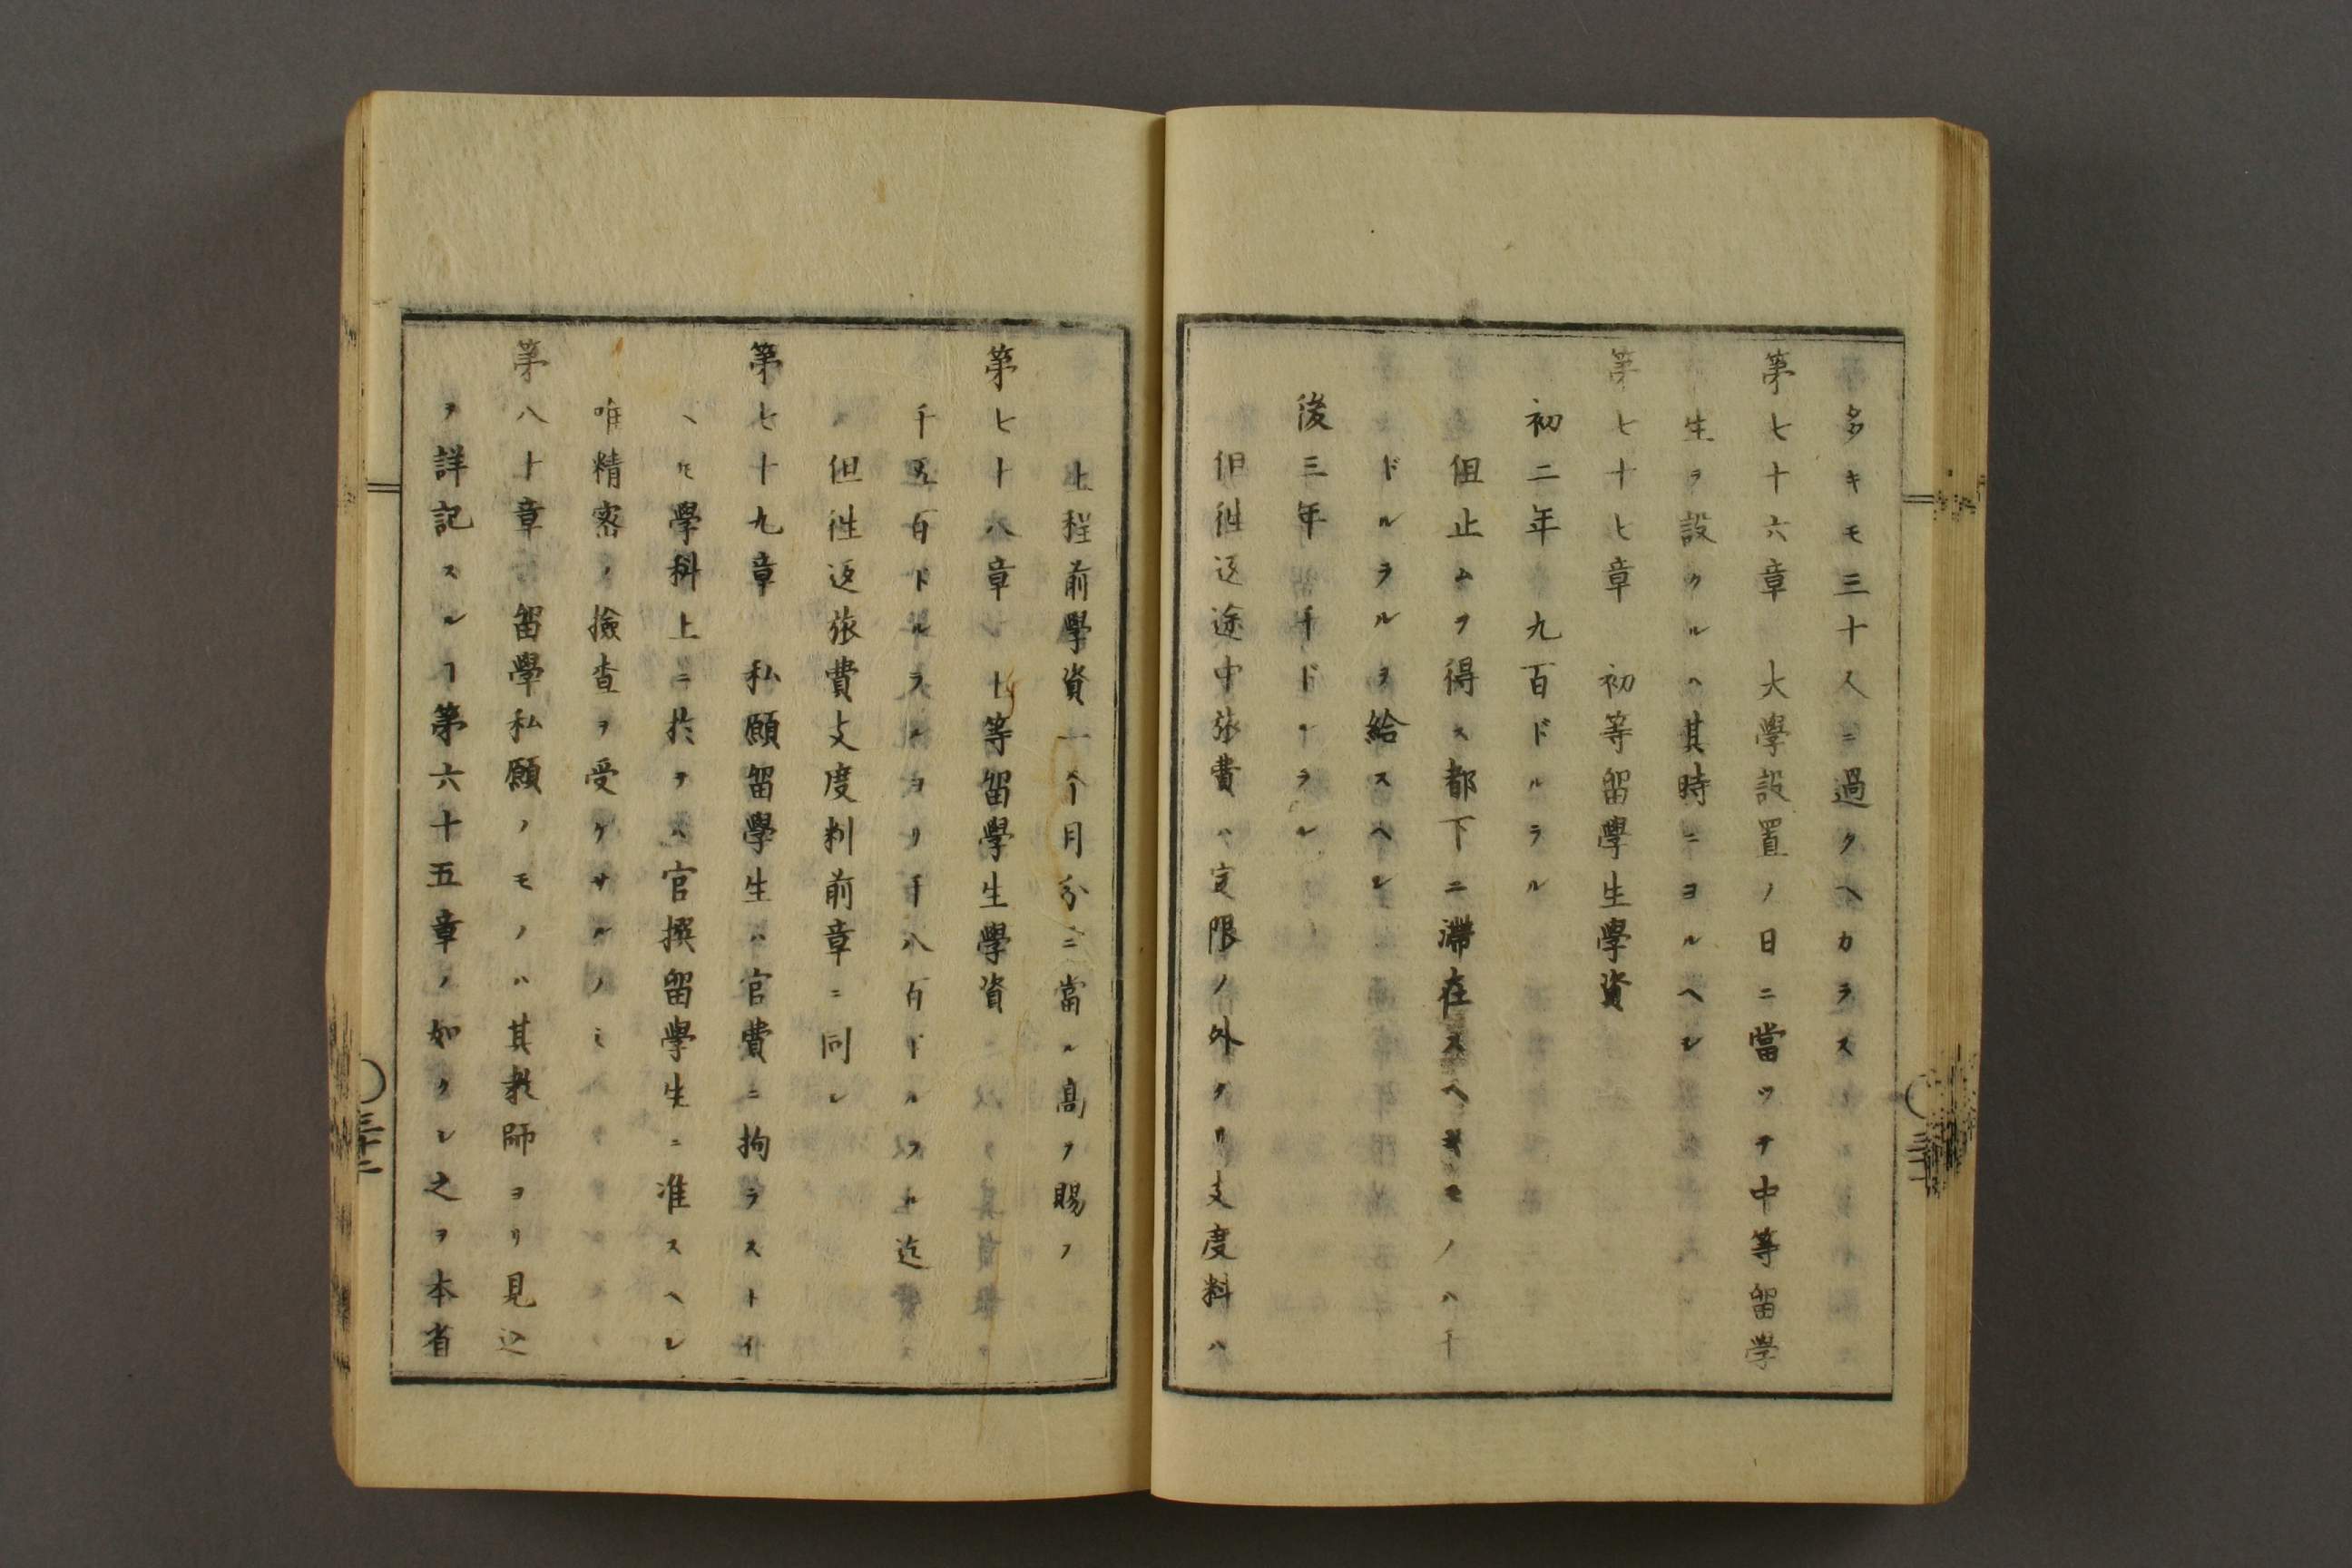 多キモ三十人ニ過クヘカラス
第七十六章　大學設置ノ日ニ當ツテ中等留学
生ヲ設クルハ其時ニヨルヘシ
第七十七章　初等留學生學資
初二年　九百ドルラル
但止ムヲ得ス都下ニ滞在スヘキモノハ千
ドルラルヲ給スヘシ
後三年　千ドルラル
但徃返途中旅費ハ定限ノ外タリ支度料ハ
三十一
上程前學資一个月分ニ當ル高ヲ賜フ
第七十八章　上等留學生學資
千五百ドルラルヨリ千八百ドルラル迄
但徃返旅費支度料前章ニ同シ
第七十九章　私願留學生ハ官費ニ拘ラストイ
ヘ𪜈學科上ニ於テハ官撰留學生ニ准スヘシ
唯精密ノ撿査ヲ受ケサルノミ
第八十章　留學私願ノモノハ其教師ヨリ見込
ヲ詳記スルヿ第六十五章ノ如クシ之ヲ本省
三十二